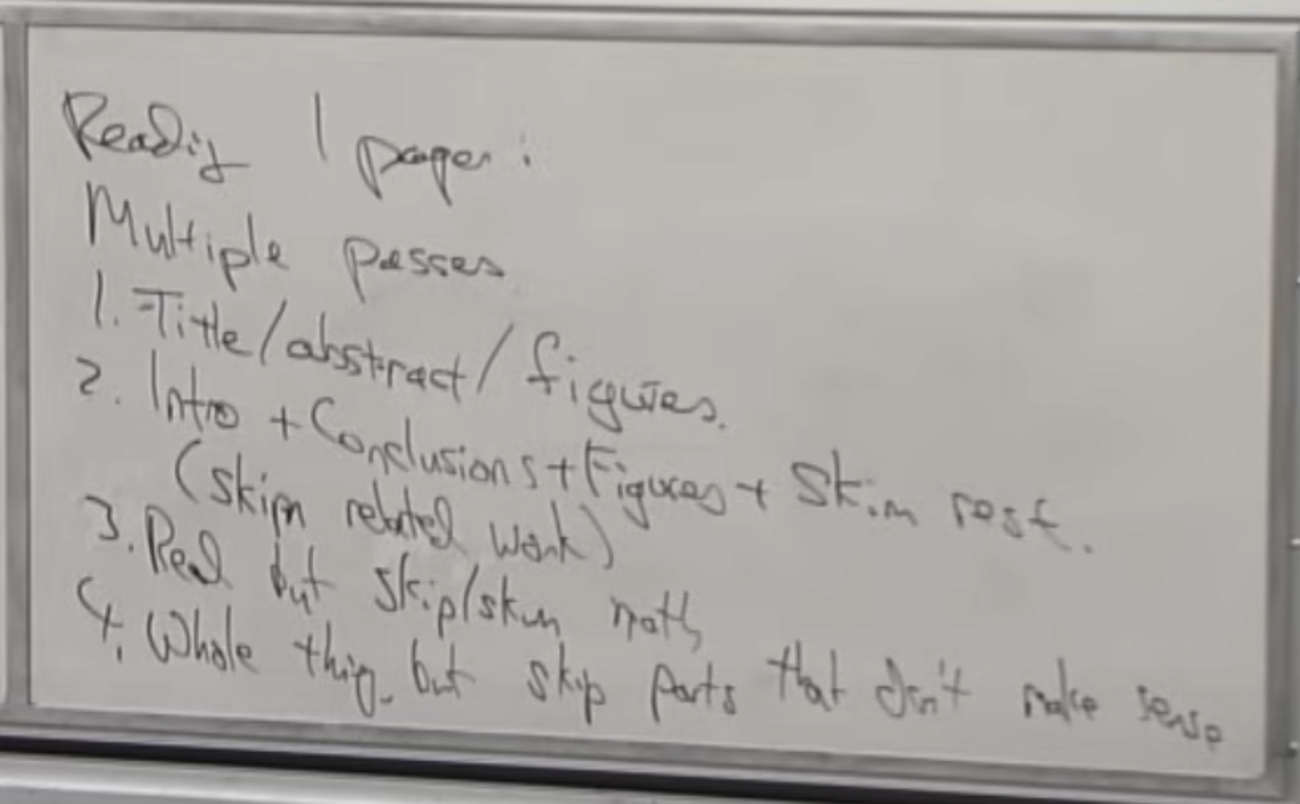 Reading 1 paper:
Multiple passes
1. Title/abstract/figures.
2. Intro + Conclusions + Figures + Skim rest.
(skim related work)
3. Read but skip/skim math
4. Whole thing, but skip parts that don't make sense